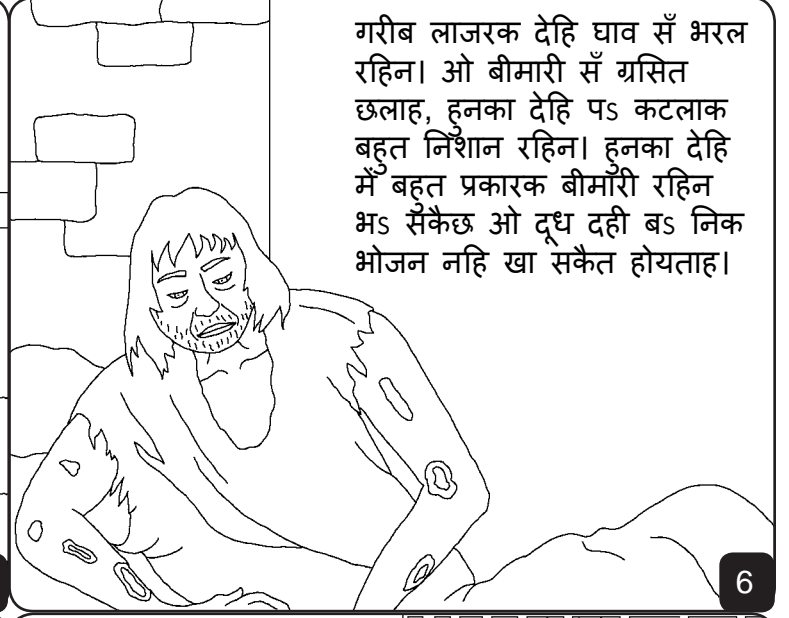 गरीब लाजरक देहि घाव सँ भरल
रहिन। ओ बीमारी सँ ग्रसित
छलाह, हुनका देहि पs कटलाक
बहुत निशान रहिन। हुनका देहि
में बहुत प्रकारक बीमारी रहिन
भs सकैछ ओ दूध दही बs निक
भोजन नहि खा सकैत होयताह।
6